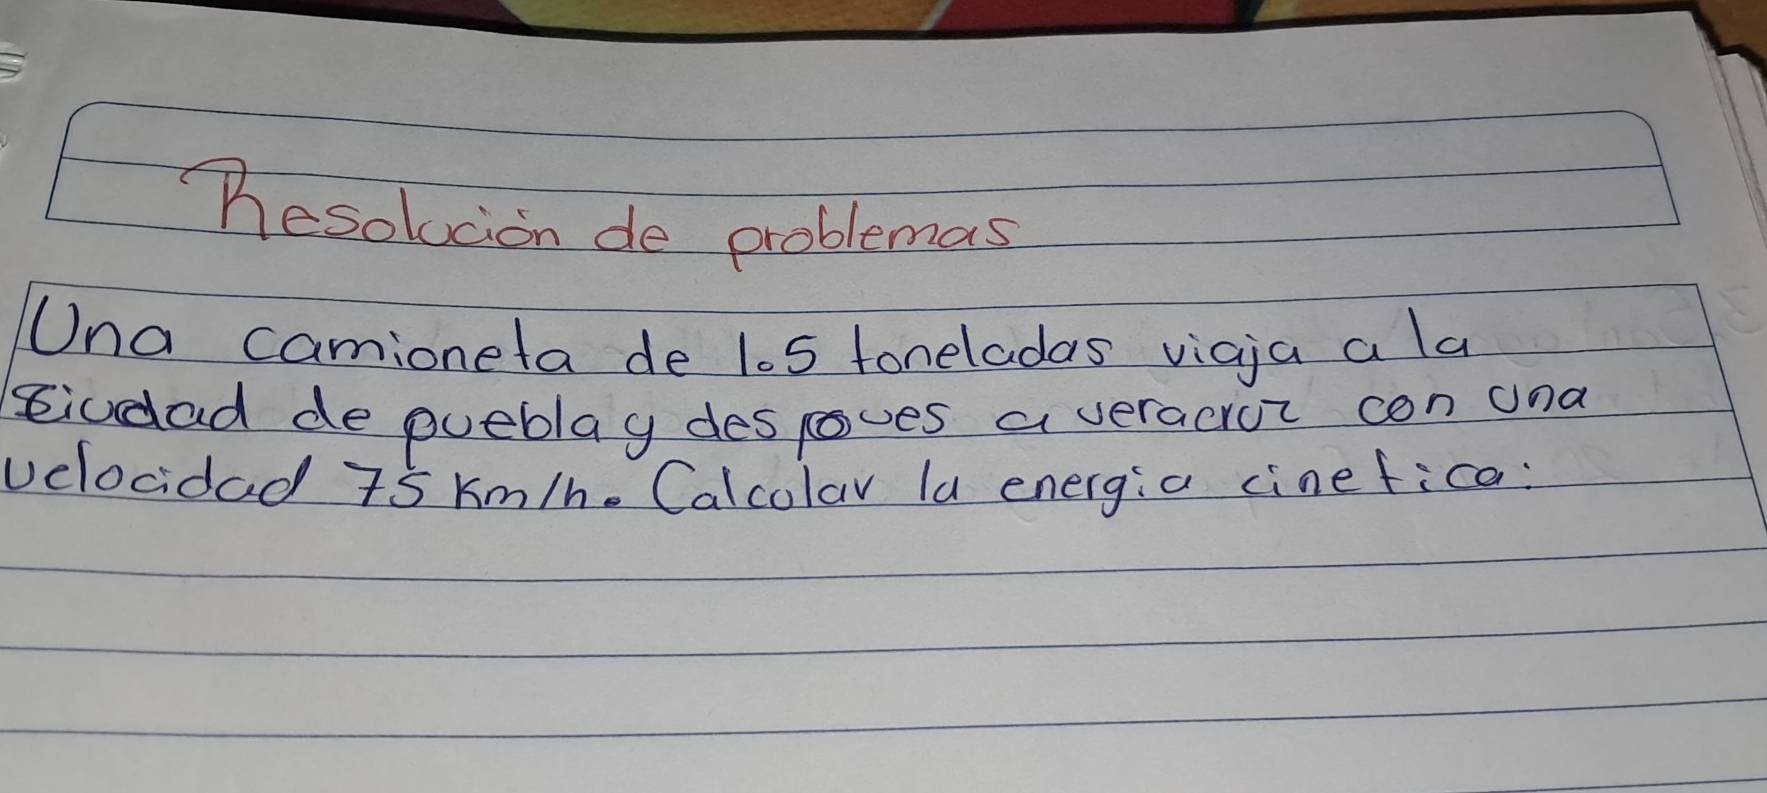 Resolución de problemas
Una camioneta de 1.5 toneladas viaja a la
ciudad de puebla y despues a veracruz con una
velocidad 75 Km/h. Calcular la energia cinetica: